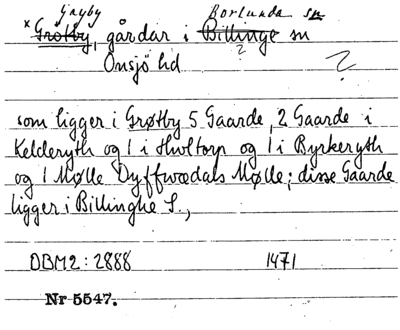 Gryby Borlunda sn
* Grøtby, gårdar i Billinge sn
?
Onsjö hd ?
som ligger i Grøtby 5 Gaarde, 2 Gaarde i
Kelderyth og 1 i Hultorp og 1 i Byrkeryth
og 1 Mølle Dyffwedals Mølle; disse Gaarde
ligger i Billinghe S.,
DBM2: 2888 1471
Nr 5547.